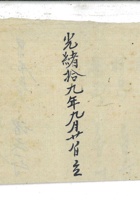 光緒拾九年九月廿日立